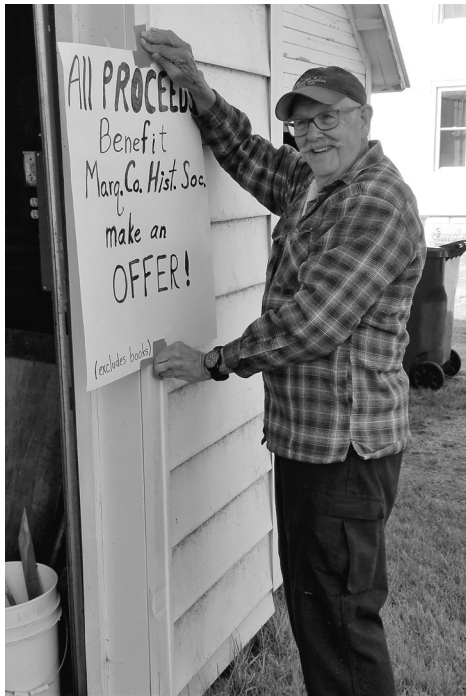 All PROCEEDS
Benefit
Marq. Co. Hist. Soc.
make an
OFFER!
(excludes books)